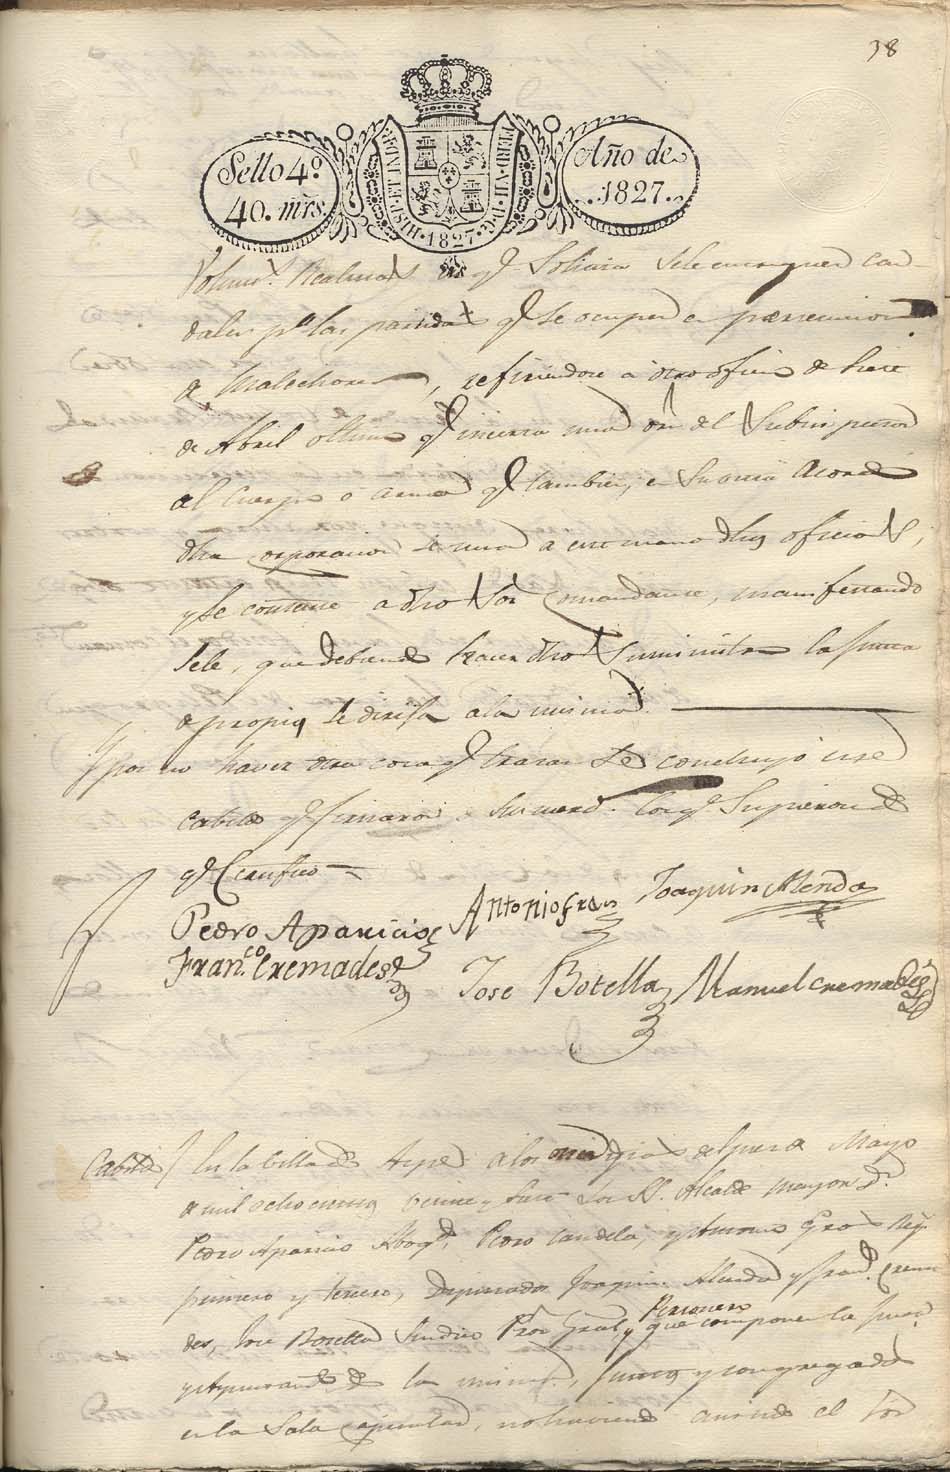 38
Sello 4º.
40. mrs.
HISP. ET IND. R. FERD. VII. D. G.
1827.
Año de
1827.
Volunt.s Realistas en qe Solicita Sele entreguen cau-
dales pa las partidas qe se ocupen en persecucion
de Malechores, refiriendose a otro oficio de siete
de Abril ultimo qe incerta una orn del Subinspector
al Cuerpo o arma qe tambien, en su
dha corporacion se una a este dhos oficios,
y se conteste a dho Sor Comandante, manifestando
sele, que debiendo hacer dho Suministro la Junta
de propios se dirija a la misma.
Y por no haver otra cosa qe tratar se concluyó este
Cabildo qe firmaron sus mercd. los qe Supieron de
qe Certifico
Pedro Aparicio
Antonio Gras
Joaquin Alenda
Franco Cremades
Jose Botella
Manuel Cremades
Cabildo
En la Villa de Aspe a los once dias del mes de Mayo
de mil ochocientos veinte y siete los SS. Alcalde mayor Dn
Pedro Aparicio Abogdo, Pedro Candela, y Antonio Gras Regr
primero y tercero, Diputados Joaquin Alenda y Franco Crema
des, Jose Botella Sindico Pror Gral y
Personero
que componen la Junta
y Ayuntamto de la misma, juntos y congregados
en la Sala Capitular, no haviendo asistido el Sor